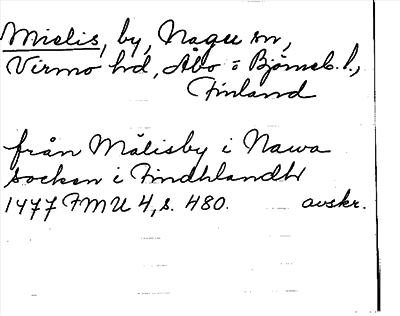 Mielis, by, Nagu sn,
Virmo hd, Åbo o Björneb. l.,
Finland
från Mälisby i Nawa
socken i Findhlandh
1477 FMU 4, s. 480. avskr.